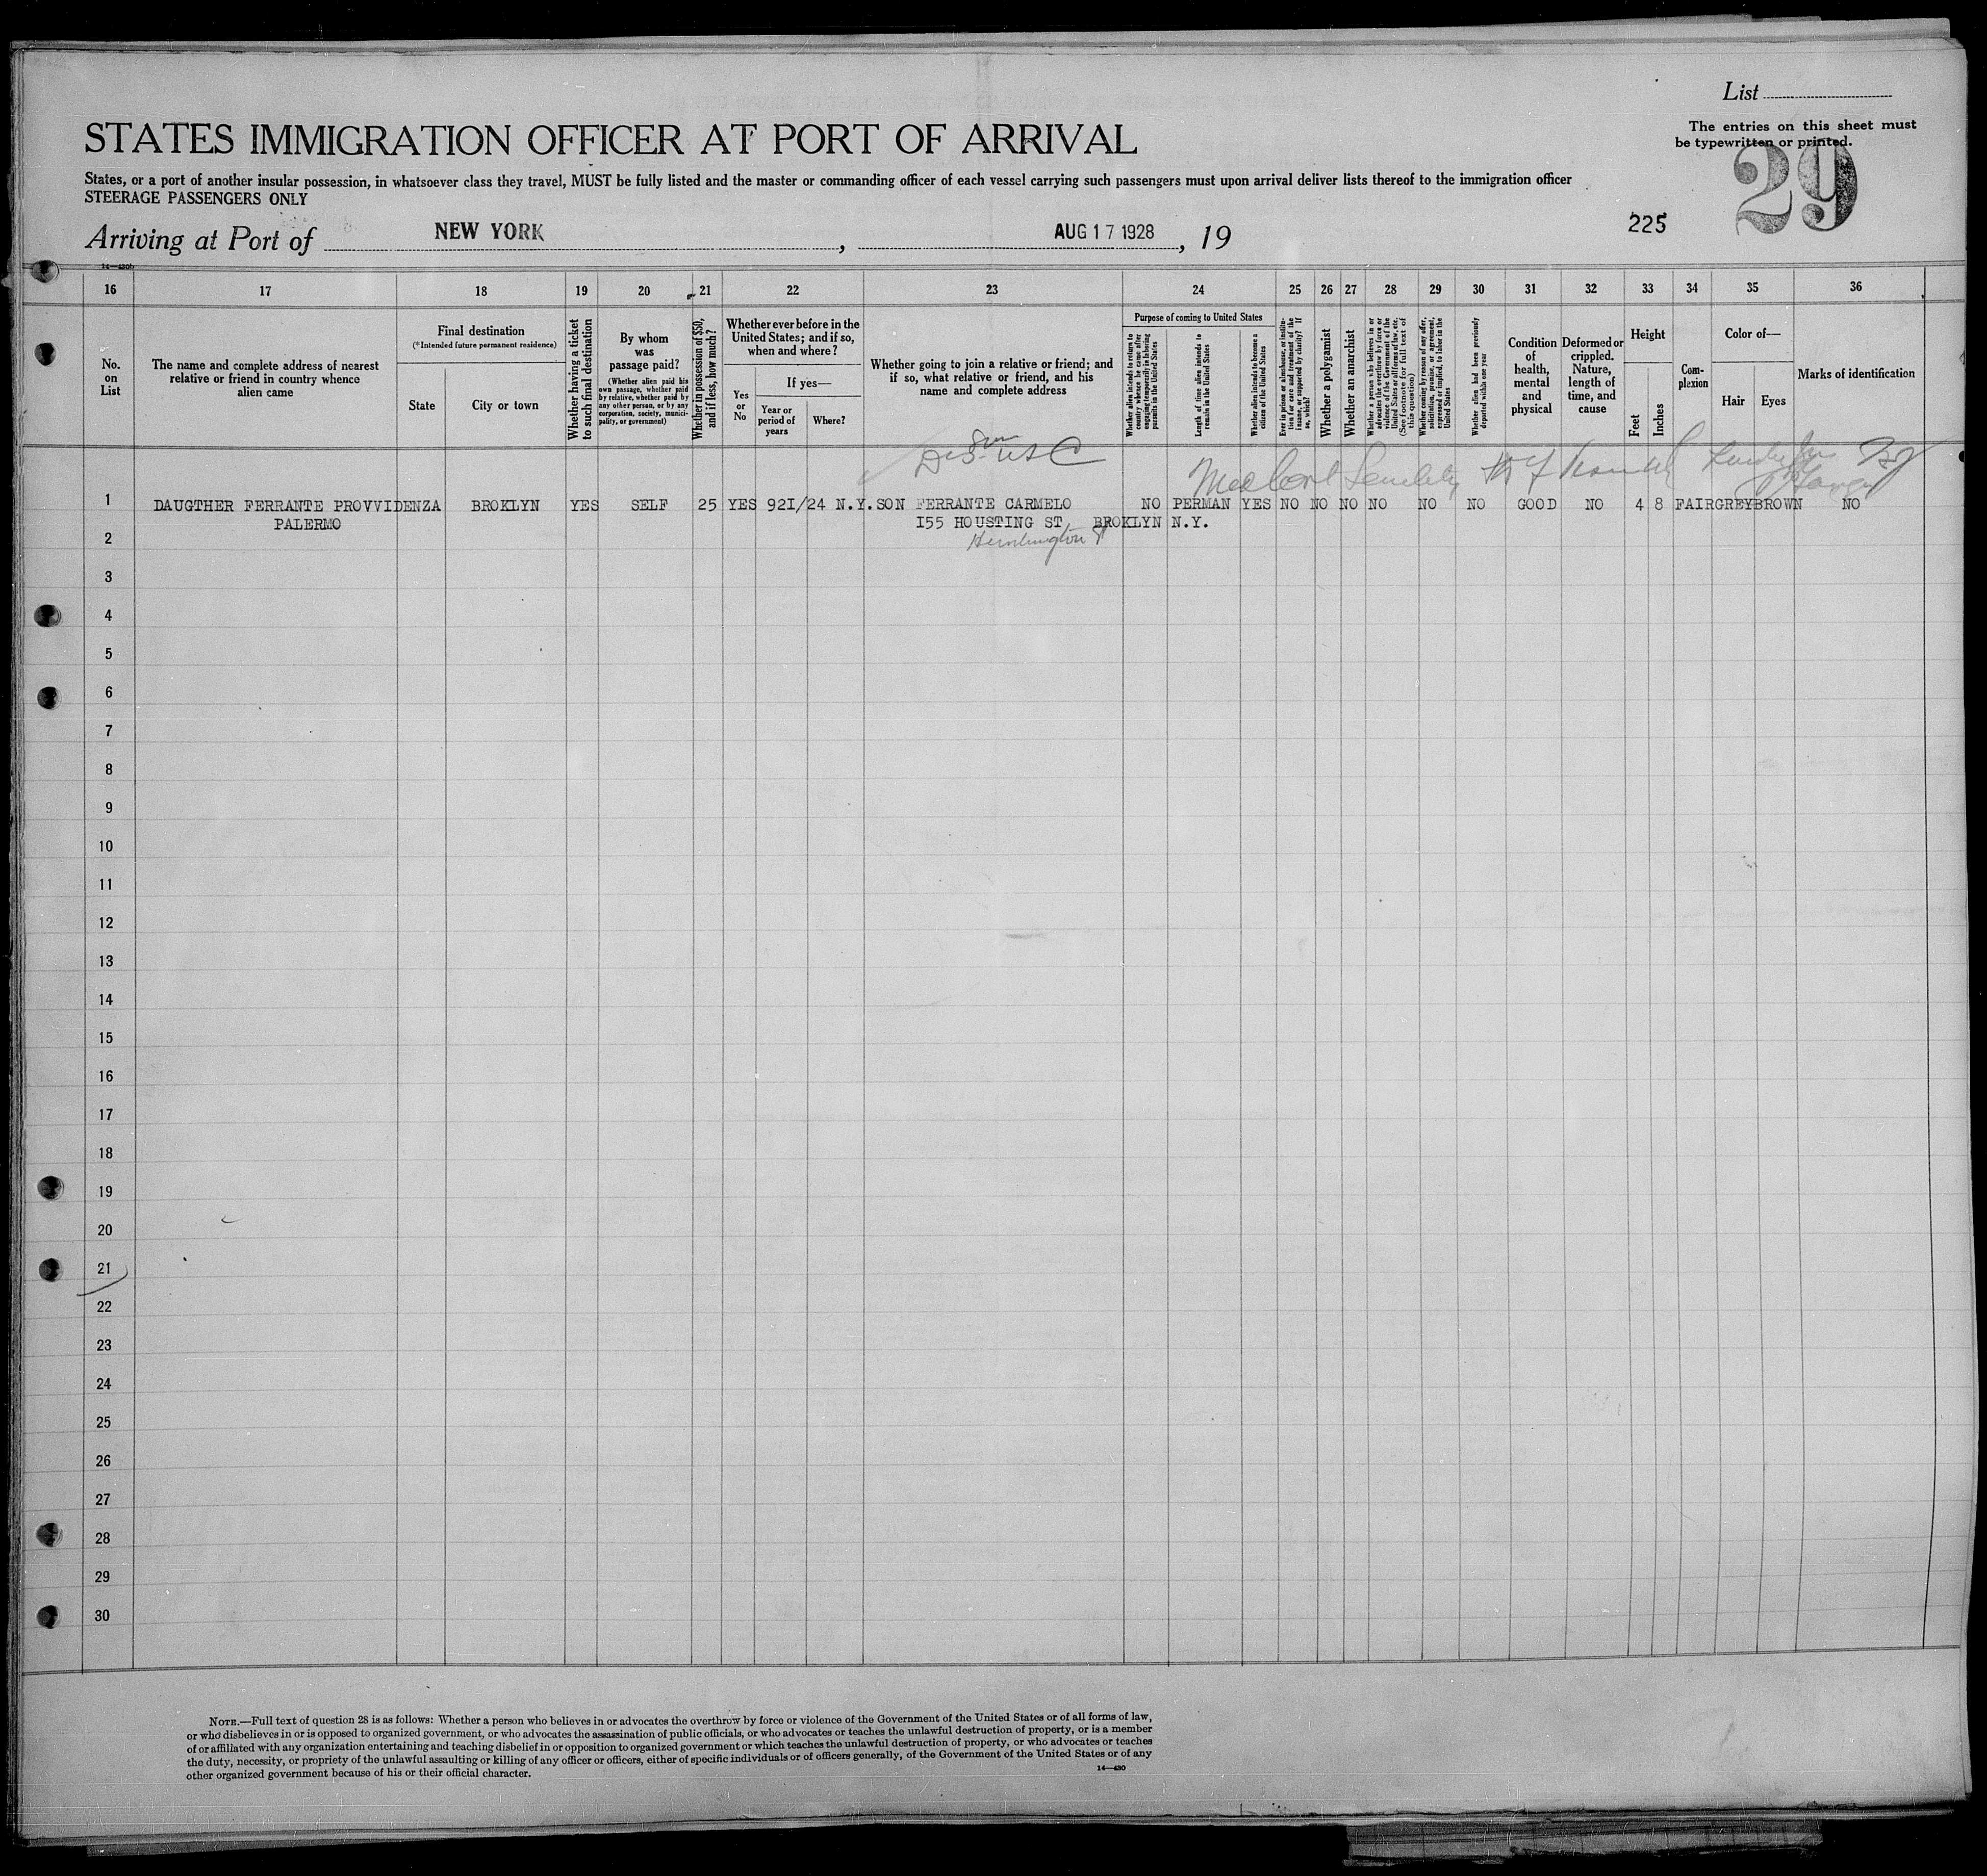 List
STATES IMMIGRATION OFFICER AT PORT OF ARRIVAL
The entries on this sheet must
be typewritten or printed.
29
States, or a port of another insular possession, in whatsoever class they travel, MUST be fully listed and the master or commanding officer of each vessel carrying such passengers must upon arrival deliver lists thereof to the immigration officer
STEERAGE PASSENGERS ONLY
225
Arriving at Port of NEW YORK, AUG 17 1928, 19
14—430b
16 17 18 19 20 21 22 23 24 25 26 27 28 29 30 31 32 33 34 35 36
No.
on
List
The name and complete address of nearest
relative or friend in country whence
alien came
Final destination
(*Intended future permanent residence)
State
City or town
Whether having a ticket
to such final destination
By whom
was
passage paid?
(Whether alien paid his
own passage, whether paid
by relative, whether paid by
any other person, or by any
corporation, society, munici-
pality, or government)
Whether in possession of $50,
and if less, how much?
Whether ever before in the
United States; and if so,
when and where?
Yes
or
No
If yes—
Year or
period of
years
Where?
Whether going to join a relative or friend; and
if so, what relative or friend, and his
name and complete address
Purpose of coming to United States
Whether alien intends to return to
country whence he came after
engaging temporarily in laboring
pursuits in the United States
Length of time alien intends to
remain in the United States
Whether alien intends to become a
citizen of the United States
Ever in prison or almshouse, or institu-
tion for care and treatment of the
insane, or supported by charity? If
so, which?
Whether a polygamist
Whether an anarchist
Whether a person who believes in or
advocates the overthrow by force or
violence of the Government of the
United States or all forms of law, etc.
(See footnote for full text of
this question)
Whether coming by reason of any offer,
solicitation, promise, or agreement,
expressed or implied, to labor in the
United States
Whether alien had been previously
deported within one year
Condition
of
health,
mental
and
physical
Deformed or
crippled.
Nature,
length of
time, and
cause
Height
Feet
Inches
Com-
plexion
Color of—
Hair
Eyes
Marks of identification
Med Cert Senility
1 DAUGTHER FERRANTE PROVVIDENZA BROKLYN YES SELF 25 YES 92I/24 N.Y. SON FERRANTE CARMELO NO PERMAN YES NO NO NO NO NO NO GOOD NO 4 8 FAIR GREY BROWN NO
PALERMO I55 HOUSTING ST. BROKLYN N.Y.
2
3
4
5
6
7
8
9
10
11
12
13
14
15
16
17
18
19
20
21
22
23
24
25
26
27
28
29
30
NOTE.—Full text of question 28 is as follows: Whether a person who believes in or advocates the overthrow by force or violence of the Government of the United States or of all forms of law,
or who disbelieves in or is opposed to organized government, or who advocates the assassination of public officials, or who advocates or teaches the unlawful destruction of property, or is a member
of or affiliated with any organization entertaining and teaching disbelief in or opposition to organized government or which teaches the unlawful destruction of property, or who advocates or teaches
the duty, necessity, or propriety of the unlawful assaulting or killing of any officer or officers, either of specific individuals or of officers generally, of the Government of the United States or of any
other organized government because of his or their official character.
14—430